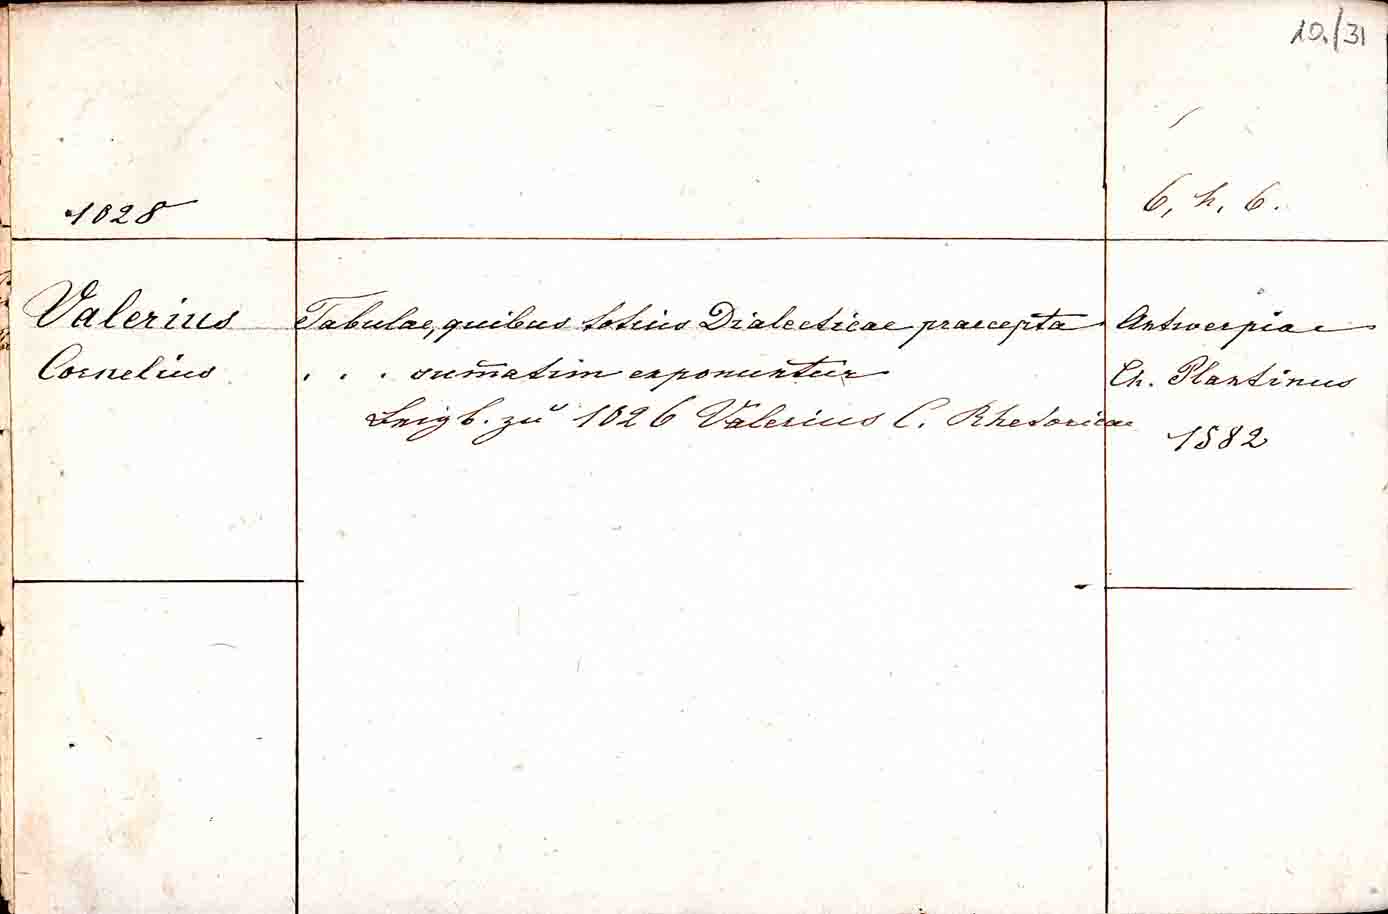 10./31
1028
6, h, 6.
Valerius Tabulae, quibus totius Dialecticae praecepta Antwerpiae
Cornelius . . . sum̄atim exponuntur Ch. Plantinus
Beigb. zu 1026 Valerius C. Rhetoricae
1582